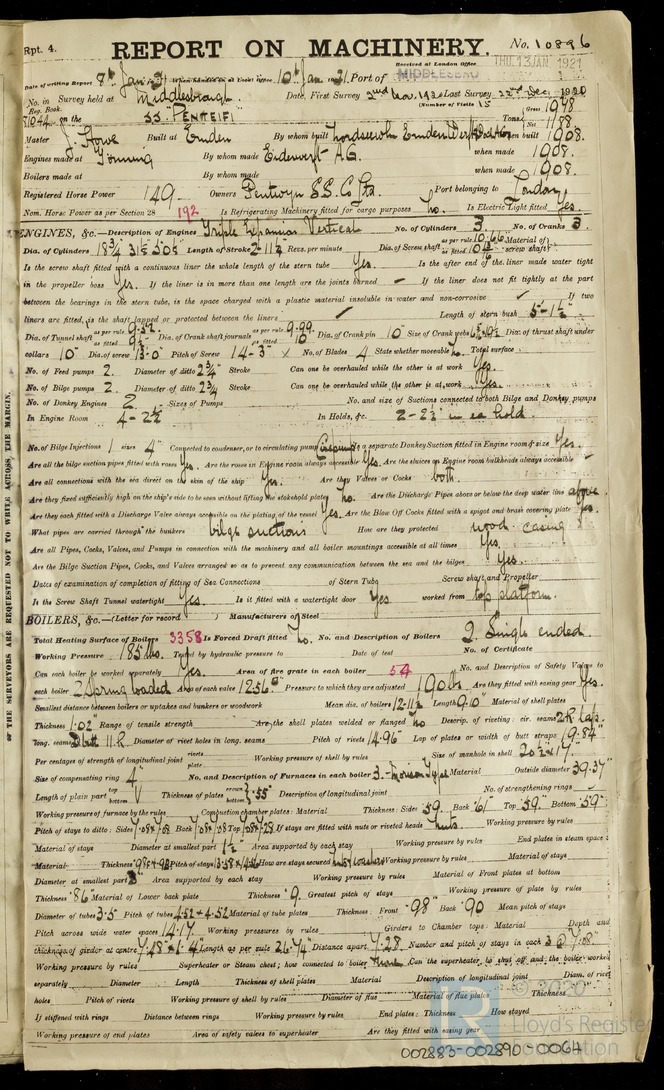 Rpt. 4.
REPORT ON MACHINERY. No. 10896
Received at London Office THU. 13 JAN 1921
Date of writing Report 8th Jan 1921 When handed in at Local Office 10th Jan 1921. Port of MIDDLESBRO
No. in Reg. Book. Survey held at Middlesbrough. Date, First Survey 2nd Nov. 1920 Last Survey 22nd Dec. 1920
(Number of Visits 15
on the SS. PENTEIFI Tons Gross 1978 Net 1188
Master J. Howe Built at Emden By whom built When built 1908.
Engines made at Tönning By whom made Eiderwerft A.G. when made 1908.
Boilers made at By whom made when made 1908.
Registered Horse Power 149 Owners Pentwyn S.S. Co Ltd. Port belonging to London
Nom. Horse Power as per Section 28 192 Is Refrigerating Machinery fitted for cargo purposes No. Is Electric Light fitted Yes.
ENGINES, &c.—Description of Engines Triple Expansion Vertical No. of Cylinders 3. No. of Cranks 3.
Dia. of Cylinders Length of Stroke Revs. per minute Dia. of Screw shaft as per rule 10.66 as fitted Material of screw shaft
Is the screw shaft fitted with a continuous liner the whole length of the stern tube Yes. Is the after end of the liner made water tight
in the propeller boss Yes. If the liner is in more than one length are the joints burned If the liner does not fit tightly at the part
between the bearings in the stern tube, is the space charged with a plastic material insoluble in water and non-corrosive If two
liners are fitted, is the shaft lapped or protected between the liners Length of stern bush 5'-1½"
Dia. of Tunnel shaft as per rule 9.52 as fitted Dia. of Crank shaft journals as per rule 9.99 as fitted 10" Dia. of Crank pin 10" Size of Crank webs Dia. of thrust shaft under
collars 10" Dia. of screw 13'-0" Pitch of Screw 14'-3" No. of Blades 4 State whether moveable No. Total surface
No. of Feed pumps 2. Diameter of ditto 2¾" Stroke Can one be overhauled while the other is at work Yes.
No. of Bilge pumps 2. Diameter of ditto 2¾ Stroke Can one be overhauled while the other is at work Yes.
No. of Donkey Engines 2 Sizes of Pumps No. and size of Suctions connected to both Bilge and Donkey pumps
In Engine Room 4 - 2½" In Holds, &c. 2 - 2½" in ea hold.
No. of Bilge Injections 1 sizes 4" Connected to condenser, or to circulating pump Is a separate Donkey Suction fitted in Engine room & size Yes.
Are all the bilge suction pipes fitted with roses Yes. Are the roses in Engine room always accessible Yes. Are the sluices on Engine room bulkheads always accessible
Are all connections with the sea direct on the skin of the ship Yes. Are they Valves or Cocks both.
Are they fixed sufficiently high on the ship's side to be seen without lifting the stokehold plates No. Are the Discharge Pipes above or below the deep water line above
Are they each fitted with a Discharge Valve always accessible on the plating of the vessel Yes. Are the Blow Off Cocks fitted with a spigot and brass covering plate Yes.
What pipes are carried through the bunkers bilge suctions How are they protected wood casing
Are all Pipes, Cocks, Valves, and Pumps in connection with the machinery and all boiler mountings accessible at all times Yes.
Are the Bilge Suction Pipes, Cocks, and Valves arranged so as to prevent any communication between the sea and the bilges Yes.
Dates of examination of completion of fitting of Sea Connections of Stern Tube Screw shaft and Propeller
Is the Screw Shaft Tunnel watertight Yes. Is it fitted with a watertight door Yes worked from top platform.
BOILERS, &c.—(Letter for record ) Manufacturers of Steel
Total Heating Surface of Boilers 3358 Is Forced Draft fitted No. No. and Description of Boilers 2 Single ended.
Working Pressure 185 lbs. Tested by hydraulic pressure to Date of test No. of Certificate
Can each boiler be worked separately Yes. Area of fire grate in each boiler 54 No. and Description of Safety Valves to
each boiler 2 Spring loaded Area of each valve 12.56" Pressure to which they are adjusted 190 lbs. Are they fitted with easing gear Yes.
Smallest distance between boilers or uptakes and bunkers or woodwork Mean dia. of boilers 12'-11½" Length 9'-10" Material of shell plates
Thickness 1.02" Range of tensile strength Are the shell plates welded or flanged No Descrip. of riveting: cir. seams 2R Lap.
long. seams Diameter of rivet holes in long. seams Pitch of rivets 14.96 Lap of plates or width of butt straps 19.84"
Per centages of strength of longitudinal joint rivets plate Working pressure of shell by rules Size of manhole in shell 20½ x 17".
Size of compensating ring 4" No. and Description of Furnaces in each boiler 3 - Morison Type Material Outside diameter 39.37"
Length of plain part top bottom Thickness of plates crown bottom .55" Description of longitudinal joint No. of strengthening rings
Working pressure of furnace by the rules Combustion chamber plates: Material Thickness: Sides .59 Back .61 Top .59" Bottom .59"
Pitch of stays to ditto: Sides Back Top If stays are fitted with nuts or riveted heads nuts Working pressure by rules
Material of stays Diameter at smallest part 1½" Area supported by each stay Working pressure by rules End plates in steam space:
Material Thickness Pitch of stays How are stays secured nuts & washers Working pressure by rules Material of stays
Diameter at smallest part Area supported by each stay Working pressure by rules Material of Front plates at bottom
Thickness .86 Material of Lower back plate Thickness .9 Greatest pitch of stays Working pressure of plate by rules
Diameter of tubes 3.5 Pitch of tubes 4.52 x 4.52 Material of tube plates Thickness: Front .98" Back .90 Mean pitch of stays
Pitch across wide water spaces 14.17 Working pressures by rules Girders to Chamber tops: Material Depth and
thickness of girder at centre Length as per rule 26.74 Distance apart 7.28 Number and pitch of stays in each 3 @ 7.08"
Working pressure by rules Superheater or Steam chest; how connected to boiler None Can the superheater be shut off and the boiler worked
separately Diameter Length Thickness of shell plates Material Description of longitudinal joint Diam. of rivet
holes Pitch of rivets Working pressure of shell by rules Diameter of flue Material of flue plates Thickness
If stiffened with rings Distance between rings Working pressure by rules End plates: Thickness How stayed
Working pressure of end plates Area of safety valves to superheater Are they fitted with easing gear
OF THE SURVEYORS ARE REQUESTED NOT TO WRITE ACROSS THE MARGIN.
© 2020
Lloyd's Register
Foundation
002883-002890-0064